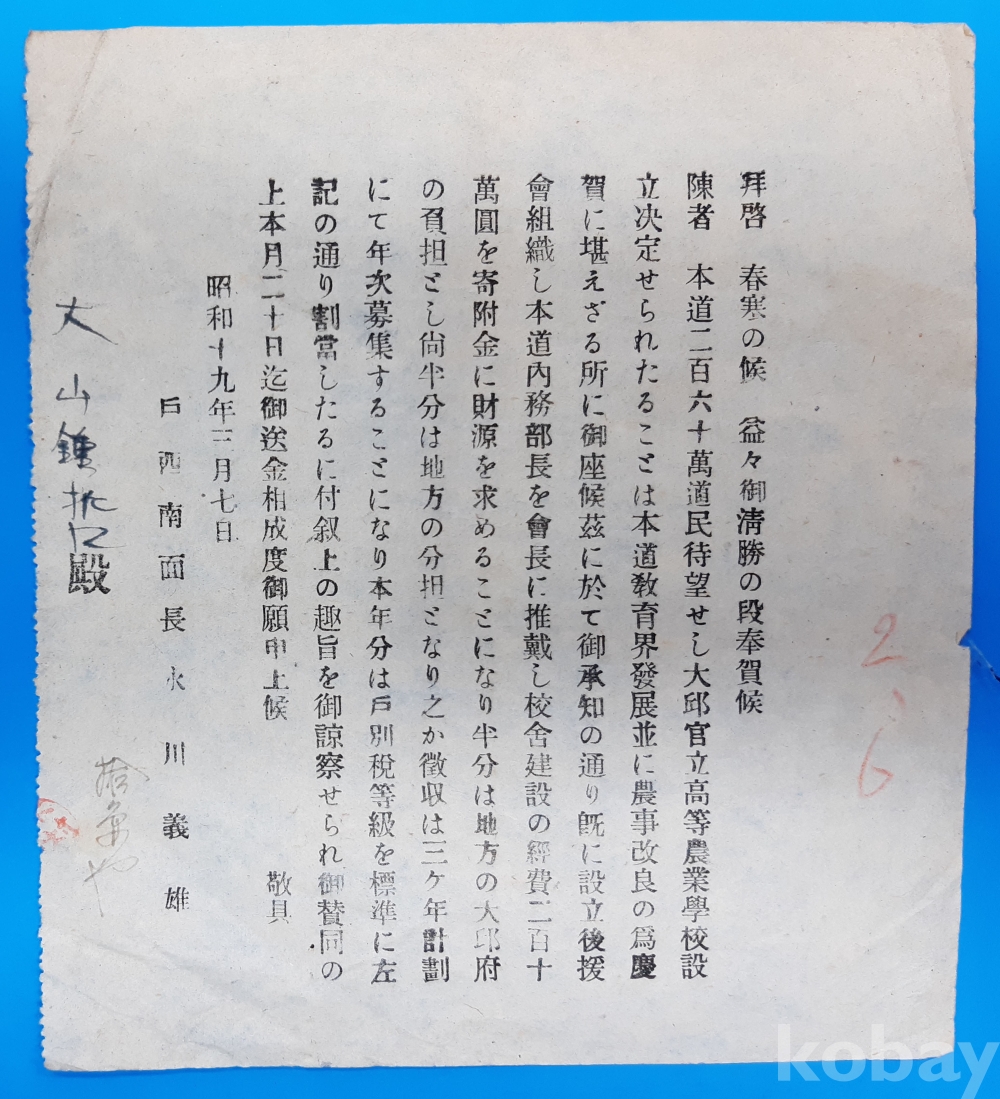 拜啓　春寒の候　益々御淸勝の段奉賀候
陳者　本道二百六十萬道民待望せし大邱官立高等農業學校設
立决定せられたることは本道敎育界發展並に農事改良の爲慶
賀に堪えざる所に御座候茲に於て御承知の通り旣に設立後援
會組織し本道內務部長を會長に推戴し校舍建設の經費二百十
萬圓を寄附金に財源を求めることになり半分は地方の大邱府
の負担とし尙半分は地方の分担となり之か徵収は三ケ年計劃
にて年次募集することになり本年分は戶別稅等級を標準に左
記の通り割當したるに付叙上の趣旨を御諒察せられ御賛同の
上本月二十日迄御送金相成度御願申上候
敬具
昭和十九年三月七日
西南面長永川義雄
大山鍾
殿
2
6
kobay